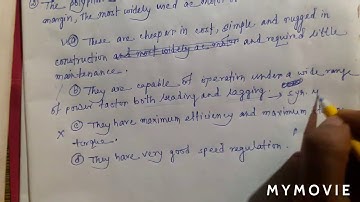 ③ The polyphase
margin, The most widely used ac motor
(a) These are cheaper in cost, simple and rugged in
construction and most widely ac motor and required little
maintenance.
(b) They are capable of operation under a wide range
of power factor both leading and lagging. → syn.
x (c) They have maximum efficiency and maximum
torque.
(d) They have very good speed regulation.
MYMOVIE